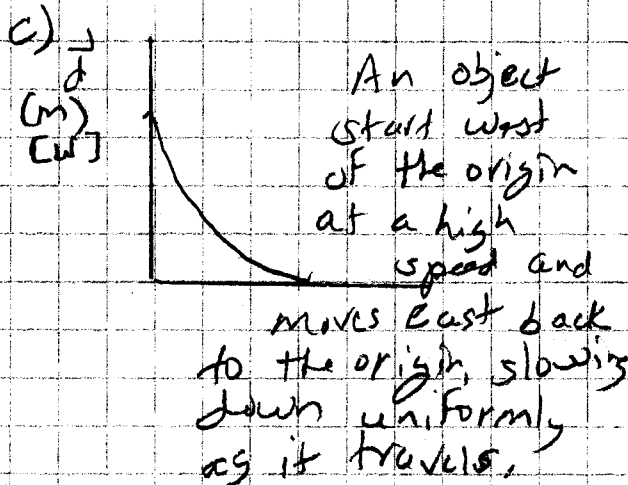 c) d⃗
(m)
[W]
An object
start west
of the origin
at a high
speed and
moves east back
to the origin, slowing
down uniformly
as it travels.